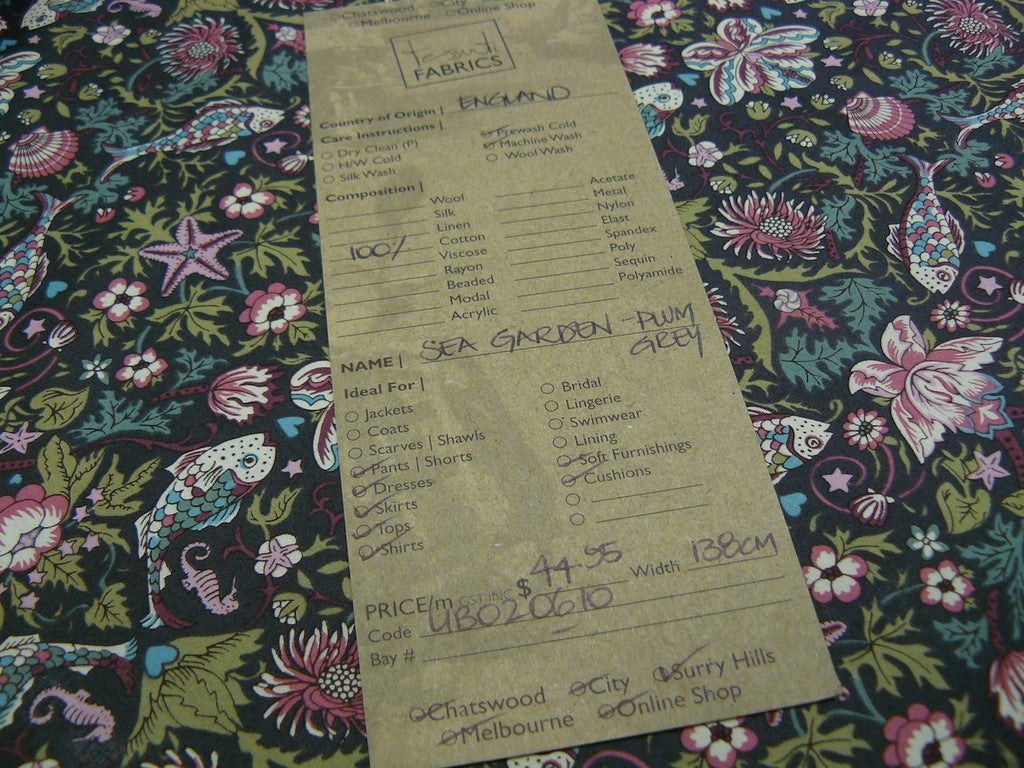 Chatswood City
Melbourne Online Shop
Tessuti
FABRICS
Country of Origin | ENGLAND
Care Instructions |
Dry Clean (P) Prewash Cold
H/W Cold Machine Wash
Silk Wash Wool Wash
Composition |
Wool Acetate
Silk Metal
Linen Nylon
100% Cotton Elast
Viscose Spandex
Rayon Poly
Beaded Sequin
Modal Polyamide
Acrylic
NAME | SEA GARDEN - PLUM
GREY
Ideal For |
Jackets Bridal
Coats Lingerie
Scarves | Shawls Swimwear
Pants | Shorts Lining
Dresses Soft Furnishings
Skirts Cushions
Tops
Shirts
PRICE/m GST INC $ 44.95 Width 138cm
Code LIB020610
Bay #
Chatswood City Surry Hills
Melbourne Online Shop